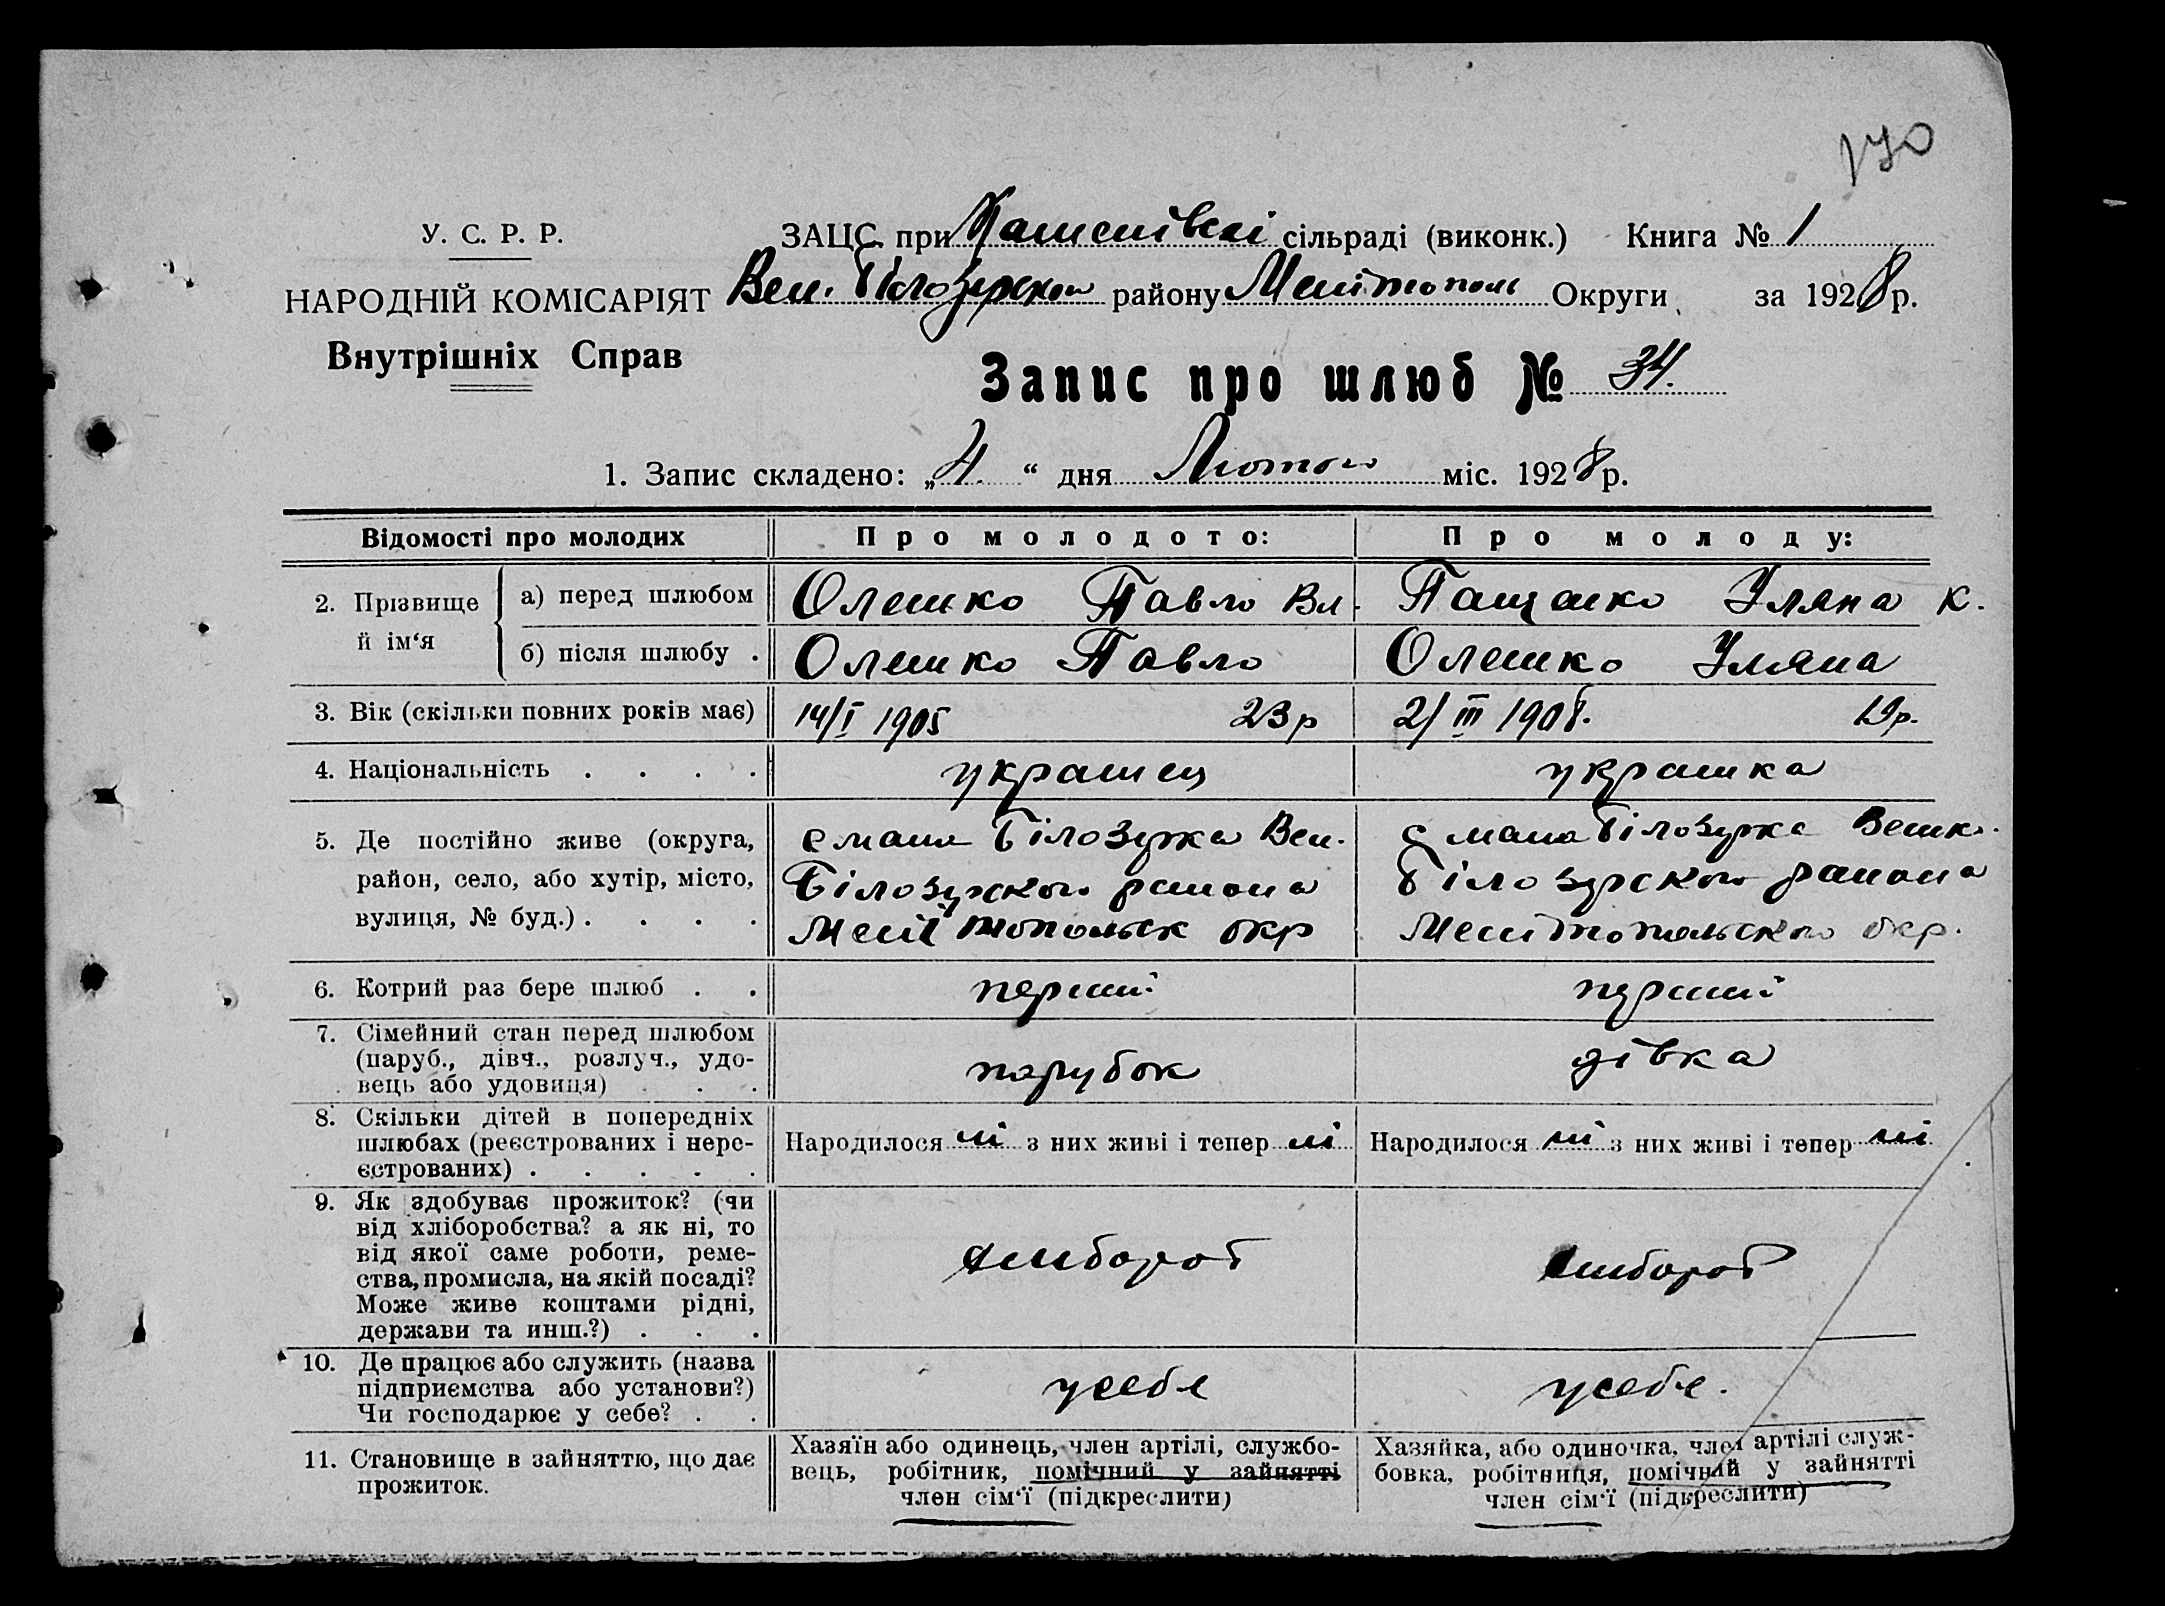 170
У. С. Р. Р.
НАРОДНІЙ КОМІСАРІЯТ
Внутрішніх Справ
ЗАЦС. при сільраді (виконк.) Книга № 1
Вел. Білозерсков району Меліитополь Округи за 1928 р.
Запис про шлюб № 34.
1. Запис складено: „ 4. “ дня Лютого міс. 1928 р.
Відомості про молодих
Про молодого:
Про молоду:
2. Прізвище й ім‘я
а) перед шлюбом
Олешко Павло Вл.
Пащенко Уляна К.
б) після шлюбу .
Олешко Павло
Олешко Уляна
3. Вік (скільки повних років має)
14/I 1905 23 р
2/III 1908. 19 р.
4. Національність . . . .
украинец
украинка
5. Де постійно живе (округа,
район, село, або хутір, місто,
вулиця, № буд.) . . . .
с мала Білозерка Вел.
Білозерского района
Мелітопольск окр
с мала Білозерка Велик.
Білозерского района
Мелитопольского окр.
6. Котрий раз бере шлюб . .
перший
перший
7. Сімейний стан перед шлюбом
(паруб., дівч., розлуч., удо-
вець або удовиця) . . .
парубок
дівка
8. Скільки дітей в попередніх
шлюбах (реєстрованих і нере-
єстрованих) . . . . .
Народилося ні з них живі і тепер ні
Народилося ні з них живі і тепер ні
9. Як здобуває прожиток? (чи
від хліборобства? а як ні, то
від якої саме роботи, реме-
ства, промисла, на якій посаді?
Може живе коштами рідні,
держави та инш.?) . . .
хлибороб
хлибороб
10. Де працює або служить (назва
підприємства або установи?)
Чи господарює у себе? . .
у себе
у себе.
11. Становище в зайняттю, що дає
прожиток.
Хазяїн або одинець, член артілі, службо-
вець, робітник, помічний у зайнятті
член сім‘ї (підкреслити)
Хазяйка, або одиночка, член артілі служ-
бовка, робітниця, помічний у зайнятті
член сім‘ї (підкреслити)